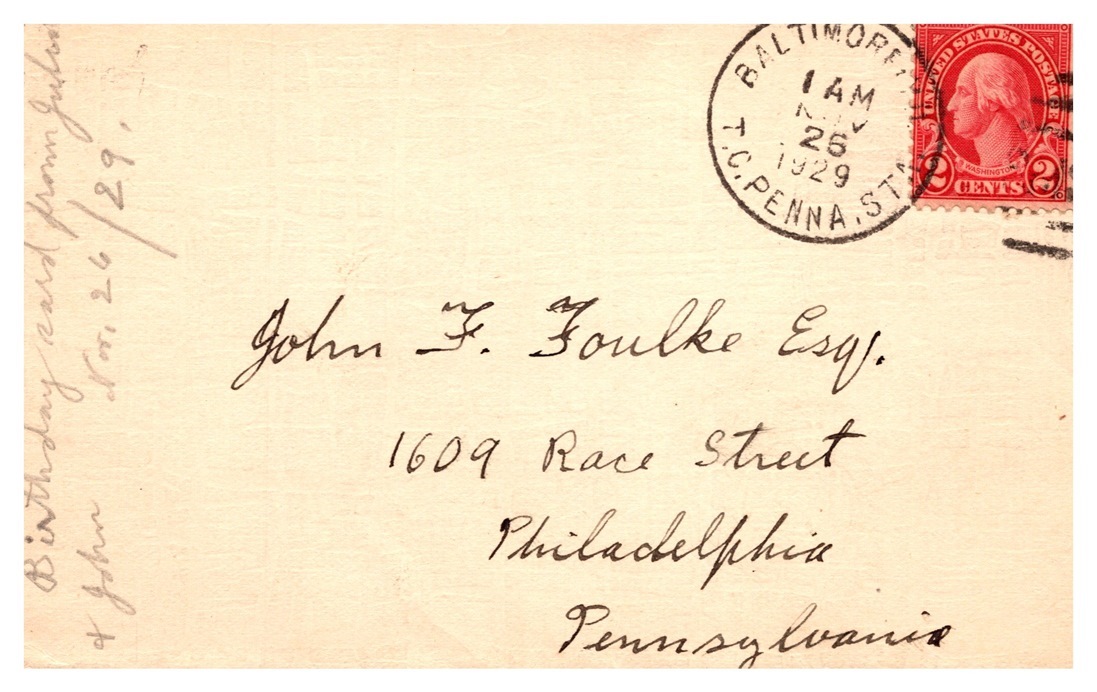 Birthday card from
& John Nov. 26/29.
BALTIMORE,
1 AM
NOV
26
1929
T.C. PENNA. STN
UNITED STATES POSTAGE
WASHINGTON
2 CENTS 2
John F. Foulke Esq.
1609 Race Street
Philadelphia
Pennsylvania